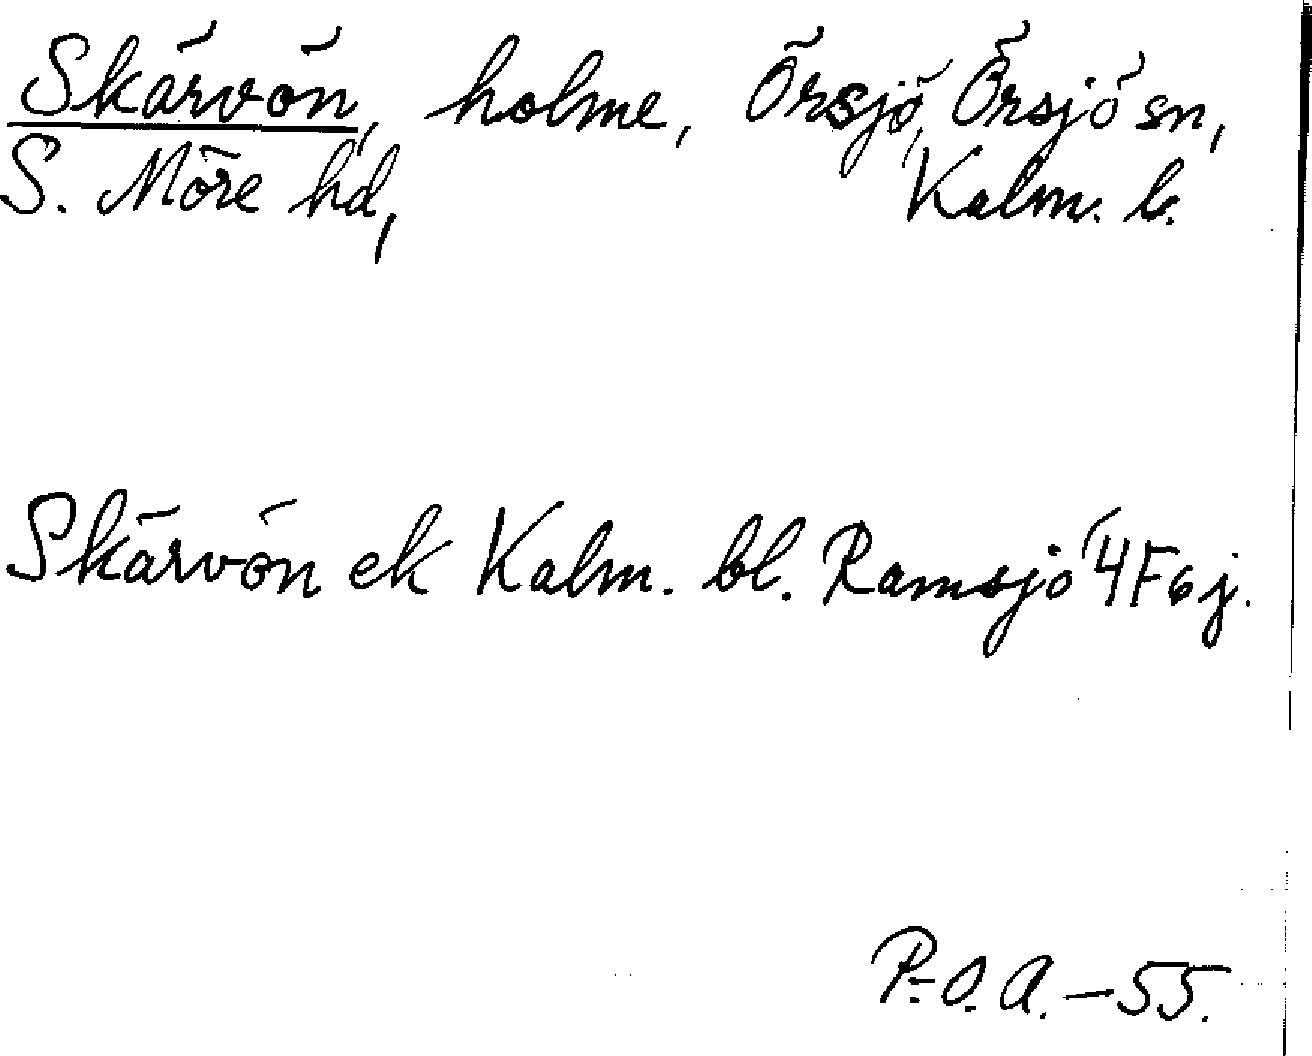 Skärvön, holme, Örsjö, Örsjö sn,
S. Möre hd, Kalm. l.
Skärvön ek Kalm. bl. Ramsjö 4F6j.
P.-O. A. - 55.